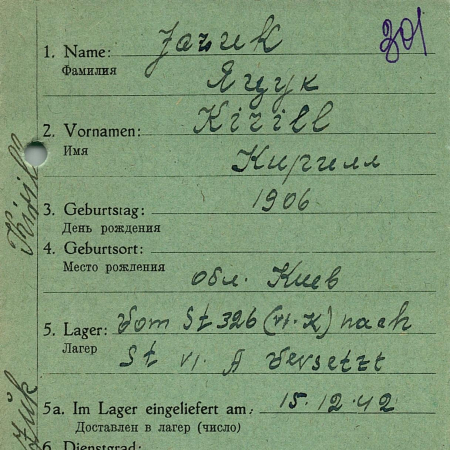 301
1. Name: Jazuk
Фамилия Яцук
2. Vornamen: Kirill
Имя Кирилл
3. Geburtstag: 1906
День рождения
4. Geburtsort:
Место рождения обл. Киев
5. Lager: Vom St 326 (VI. K) nach
Лагер St VI. A versetzt
5a. Im Lager eingeliefert am: 15.12.42
Доставлен в лагер (число)
6. Dienstgrad:
Kirill